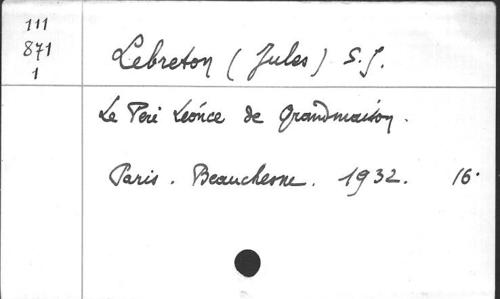 111
871
1
Lebreton (Jules) S.J.
Le Père Léonce de Grandmaison.
Paris. Beauchesne. 1932. 16°